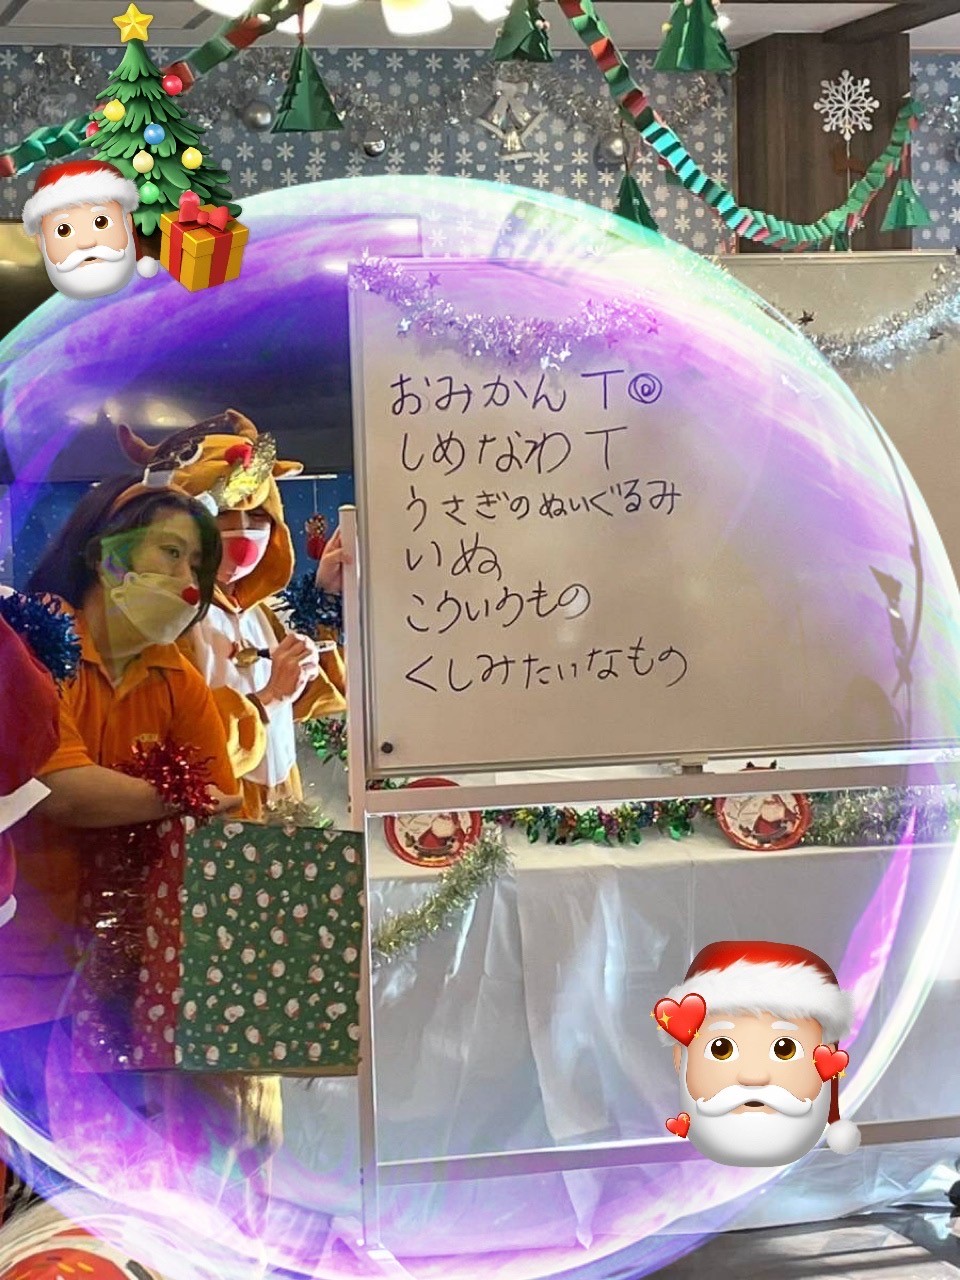 おみかん T◎
しめなわ T
うさぎのぬいぐるみ
いぬ
こういうもの
くしみたいなもの